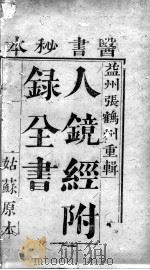 醫書秘本
益州張鶴洲重輯
人鏡經附
錄全書
姑蘇原本